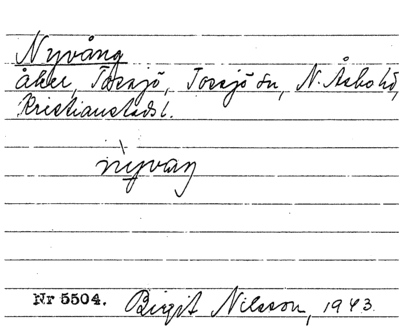 Nyvång
åker, Tossjö, Tossjö sn, N. Åsbo hd,
Kristianstads l.
nỳvaŋ
Nr 5504. Birgit Nilsson, 1943.